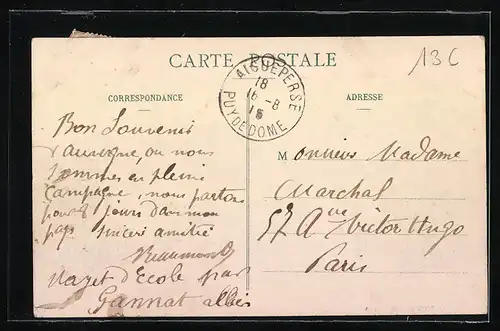 13 C
CARTE POSTALE
AIGUEPERSE
18
16-8
15
PUY DE DOME
CORRESPONDANCE
ADRESSE
Bon Souvenir
d'auvergne, ou nous
sommes en pleine
campagne, nous partons
pour 8 jours dans mon
pays sincère amitié
Mazet d'Ecole par
Gannat allier
Monsieur Madame
Marchal
57 Ave Victor Hugo
Paris